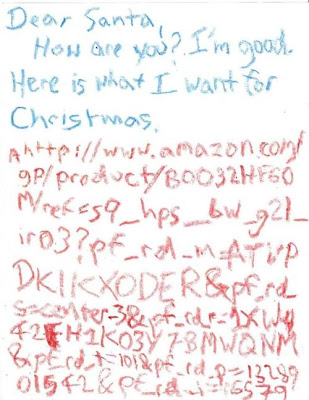 Dear Santa,
How are you? I'm good.
Here is what I want for
Christmas.
Ahttp://www.amazon.com/
gp/product/B0032HF60
M/ref=s9_hps_bw_g21_
ir03?pf_rd_m=ATVP
DKIKX0DER&pf_rd_
s=center-3&pf_rd_r=1XW4
42FH1K03Y78MWQNM
&pf_rd_t=101&pf_rd_p=13289
01542&pf_rd_i=16579